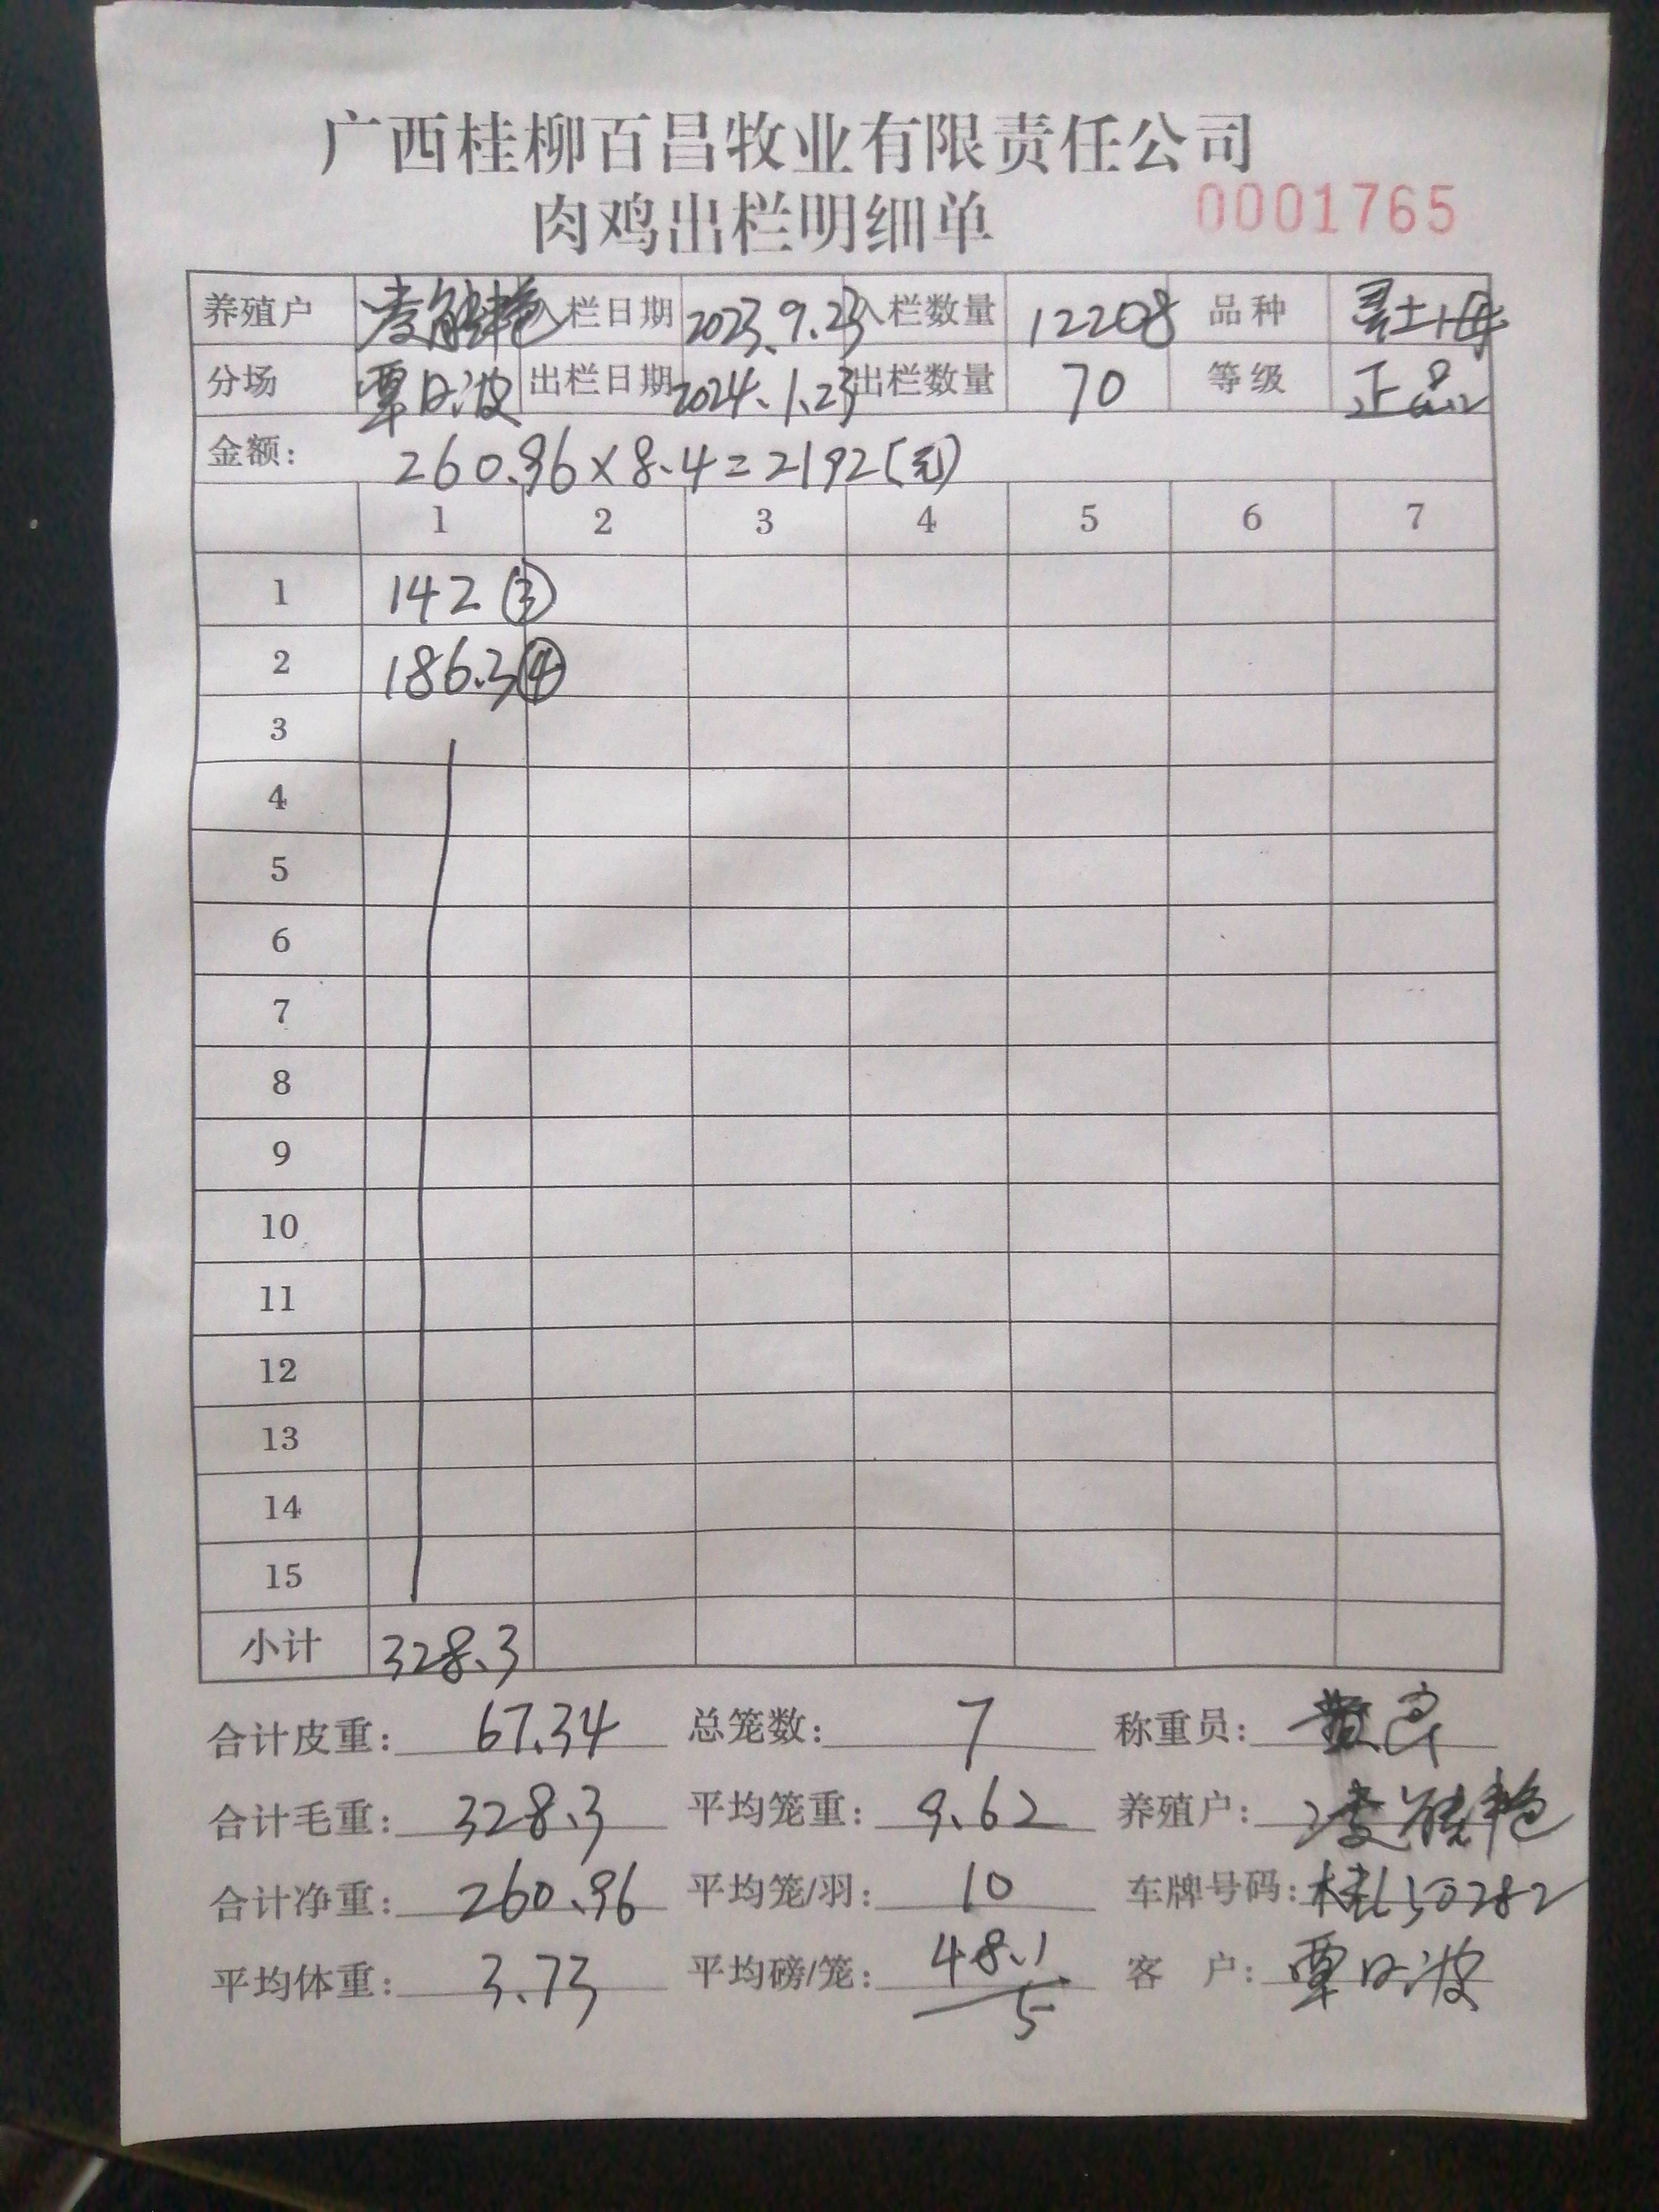 广西桂柳百昌牧业有限责任公司
肉鸡出栏明细单 0001765
养殖户 入栏日期 2023.9.23 入栏数量 12208 品种 土
分场 覃日波 出栏日期 2024.1.23 出栏数量 70 等级 正品
金额: 260.96×8.4=2192(元)
1 2 3 4 5 6 7
1 142③
2 186.3④
3
4
5
6
7
8
9
10
11
12
13
14
15
小计 328.3
合计皮重: 67.34 总笼数: 7 称重员: 黄
合计毛重: 328.3 平均笼重: 9.62 养殖户:
合计净重: 260.96 平均笼/羽: 10 车牌号码: 桂L50282
平均体重: 3.73 平均磅/笼: 48.1 客户: 覃日波
5